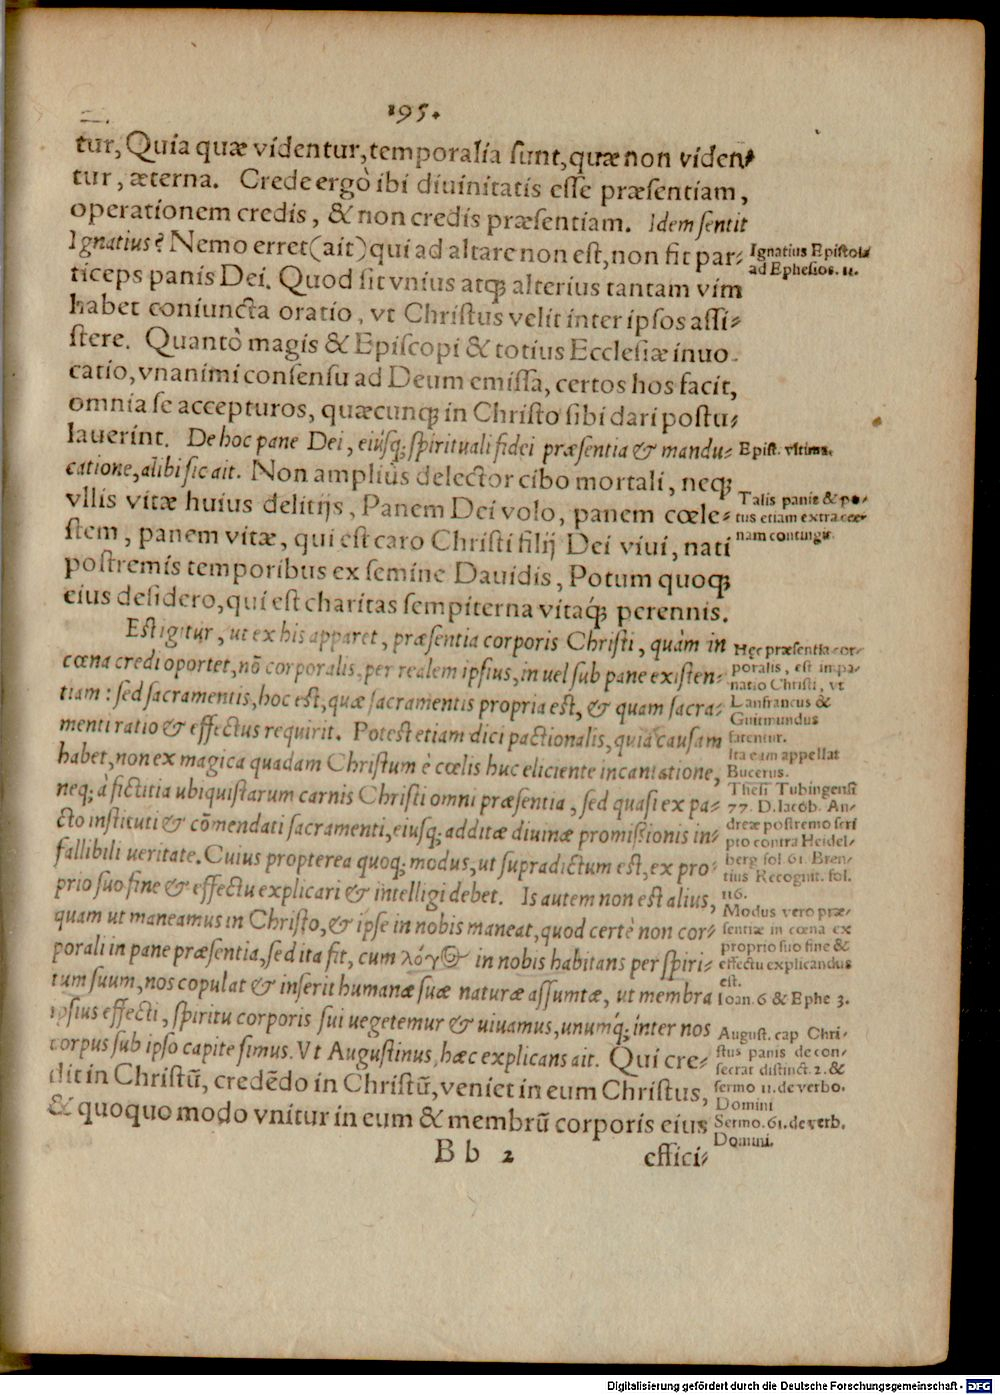 195.
tur, Quia quæ videntur, temporalia sunt, quæ non viden⸗
tur, æterna. Crede ergò ibi diuinitatis esse præsentiam,
operationem credis, & non credis præsentiam. Idem sentit
Ignatius? Nemo erret (ait) qui ad altare non est, non fit par⸗
ticeps panis Dei. Quod si t vnius atq; alterius tantam vim
habet coniuncta oratio, vt Christus velit inter ipsos assi⸗
stere. Quantò magis & Episcopi & totius Ecclesiæ inuo⸗
catio, vnanimi consensu ad Deum emissa, certos hos facit,
omnia se accepturos, quæcunq; in Christo sibi dari postu⸗
lauerint. De hoc pane Dei, eiúsq; spirituali fidei præsentia & mandu⸗
catione, alibi sic ait. Non ampliùs delector cibo mortali, neq;
vllis vitæ huius delitijs, Panem Dei volo, panem cœle⸗
stem, panem vitæ, qui est caro Christi filij Dei viui, nati
postremis temporibus ex semine Dauidis, Potum quoq;
eius desidero, qui est charitas sempiterna vitaq́; perennis.
Est igitur, ut ex his apparet, præsentia corporis Christi, quàm in
cœna credi oportet, nõ corporalis, per realem ipsius, in uel sub pane existen⸗
tiam: sed sacramentis, hoc est, quæ sacramentis propria est, & quam sacra⸗
menti ratio & effectus requirit. Potest etiam dici pactionalis, quia causam
habet, non ex magica quadam Christum è cœlis huc eliciente incantatione,
neq; à fictitia ubiquistarum carnis Christi omni præsentia, sed quasi ex pa⸗
cto instituti & cõmendati sacramenti, eiusq; additæ diuinæ promißionis in⸗
fallibili ueritate. Cuius propterea quoq; modus, ut supradictum est, ex pro⸗
prio suo fine & effectu explicari & intelligi debet. Is autem non est alius,
quam ut maneamus in Christo, & ipse in nobis maneat, quod certè non cor⸗
porali in pane præsentia, sed ita fit, cum λόγος in nobis habitans per spiri⸗
tum suum, nos copulat & inserit humanæ suæ naturæ assumtæ, ut membra
ipsius effecti, spiritu corporis sui uegetemur & uiuamus, unumq́; inter nos
corpus sub ipso capite simus. Vt Augustinus, hæc explicans ait. Qui cre⸗
dit in Christũ, credẽdo in Christũ, veniet in eum Christus,
& quoquo modo vnitur in eum & membrũ corporis eius
B b 2 effici⸗
Ignatius Epistola
ad Ephesios. 11.
Epist. vltima.
Talis panis & po⸗
tus etiam extra cœ⸗
nam contingit.
Hęc præsentia cor⸗
poralis, est impa⸗
natio Christi, vt
Lanfrancus &
Guitmundus
fatentur.
Ita eam appellat
Bucerus.
Thesi Tubingensi
77. D. Iacob. An⸗
dreæ postremo scri
pto contra Heidel⸗
berg fol. 61. Bren⸗
tius Recognit. fol.
116.
Modus vero præ⸗
sentiæ in cœna ex
proprio suo fine &
effectu explicandus
est.
Ioan. 6 & Ephe 3.
August. cap Chri⸗
stus panis de con⸗
secrat distinct. 2. &
sermo 11. de verbo.
Domini
Sermo. 61. de verb.
Domini.
Digitalisierung gefördert durch die Deutsche Forschungsgemeinschaft - DFG